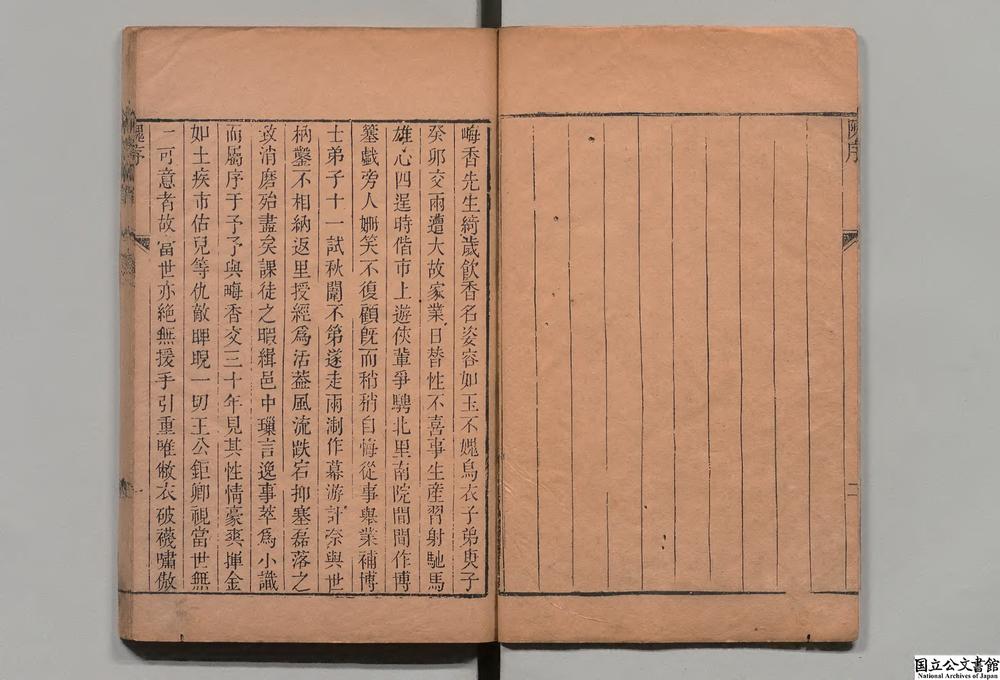 陳序
二
晦香先生綺歲飲香名姿容如玉不媿烏衣子弟庚子
癸卯交兩遭大故家業日替性不喜事生產習射馳馬
雄心四逞時偕市上遊俠輩爭騁北里南院間間作博
簺戲旁人姍笑不復顧旣而稍稍自悔從事舉業補博
士弟子十一試秋闈不第遂走兩淛作幕游計奈與世
枘鑿不相納返里授經爲活葢風流跌宕抑塞磊落之
致消磨殆盡矣課徒之暇緝邑中瓅言逸事萃爲小識
而屬序于予予與晦香交三十年見其性情豪爽揮金
如土疾市佔兒等仇敵睥睨一切王公鉅卿視當世無
一可意者故當世亦絕無援手引重唯敝衣破襪嘯傲
序
一
国立公文書館
National Archives of Japan